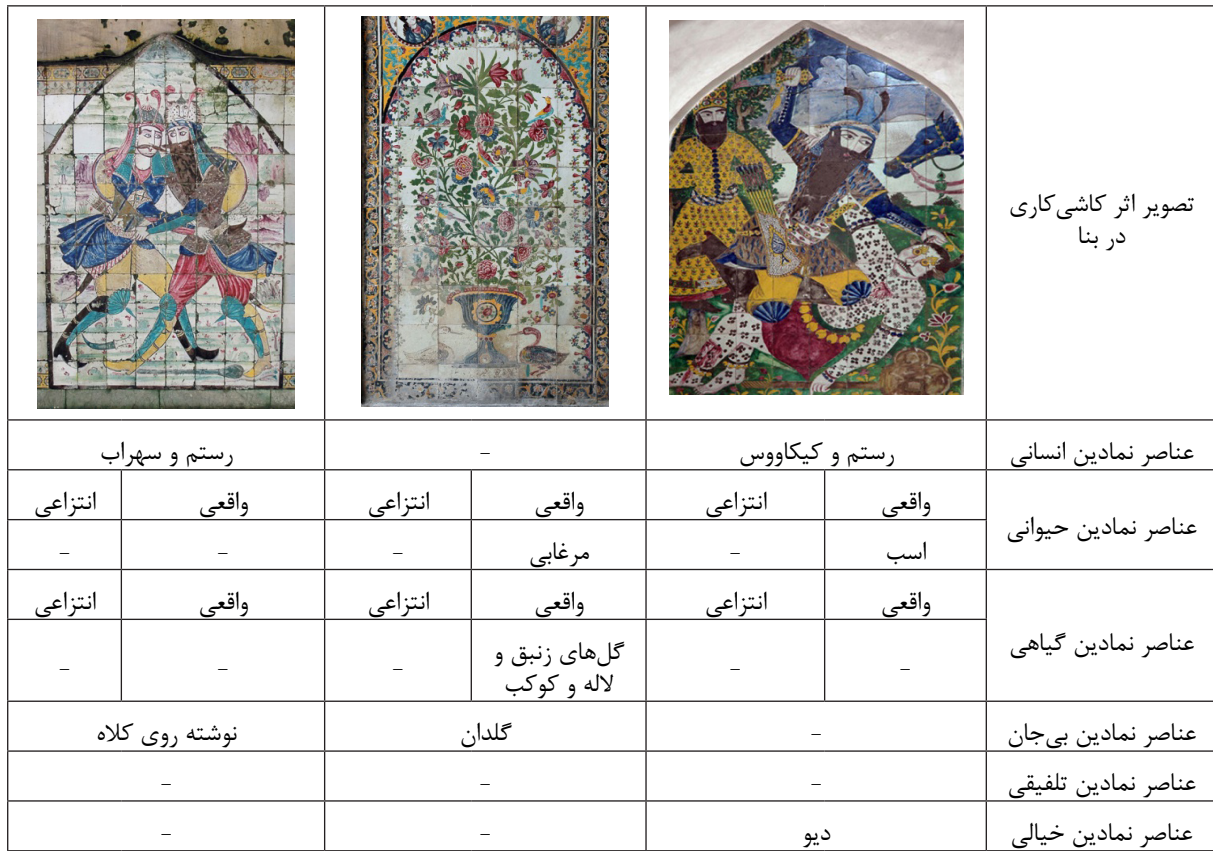 تصویر اثر کاشی‌کاری
در بنا
عناصر نمادین انسانی رستم و کیکاووس – رستم و سهراب
عناصر نمادین حیوانی واقعی انتزاعی واقعی انتزاعی واقعی انتزاعی
اسب – مرغابی – – –
عناصر نمادین گیاهی واقعی انتزاعی واقعی انتزاعی واقعی انتزاعی
– – گل‌های زنبق و
لاله و کوکب – – –
عناصر نمادین بی‌جان – گلدان نوشته روی کلاه
عناصر نمادین تلفیقی – – –
عناصر نمادین خیالی دیو – –